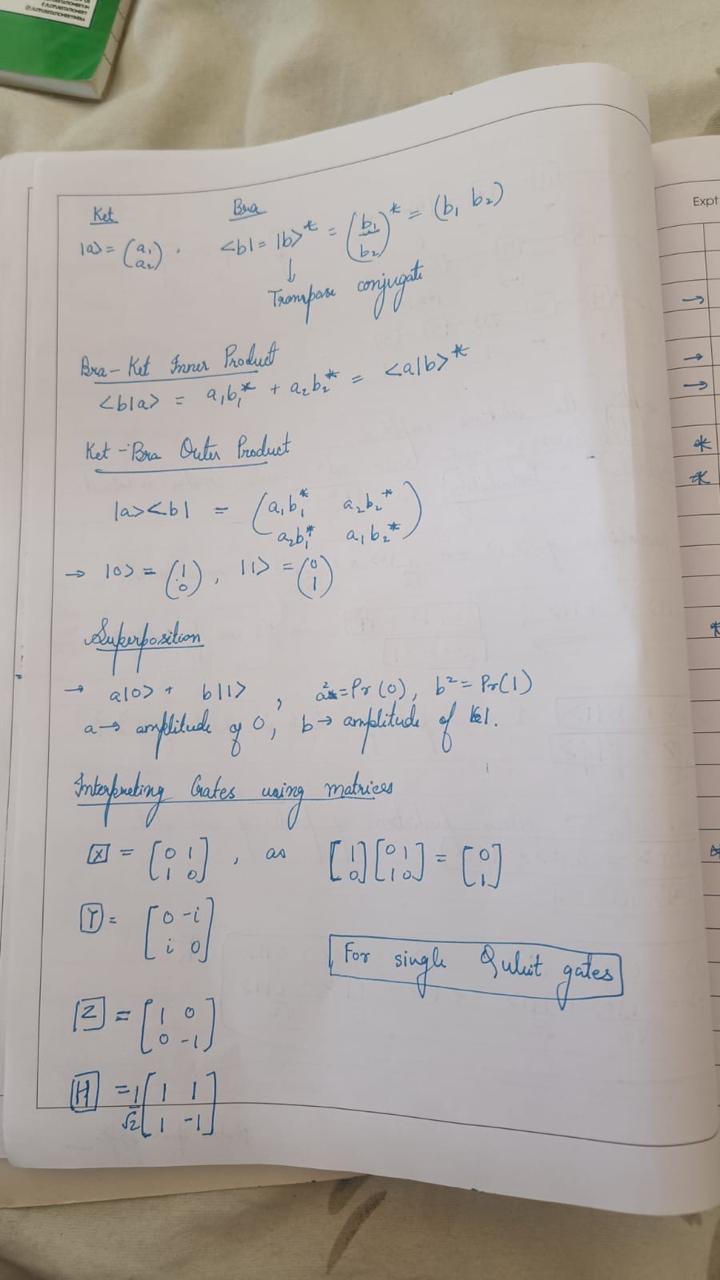 Ket Bra
|a> = (a₁ a₂) . <b| = |b>* = (b₁ b₂)* = (b₁ b₂)
↓
Transpose conjugate
Bra-Ket Inner Product
<b|a> = a₁b₁* + a₂b₂* = <a|b>*
Ket-Bra Outer Product
|a><b| = (a₁b₁* a₂b₂*
a₂b₁* a₁b₂*)
→ |0> = (1 0), |1> = (0 1)
Superposition
→ a|0> + b|1> , a²=Pr(0), b²=Pr(1)
a→ amplitude of 0, b→ amplitude of 1.
Interpreting Gates using matrices
X = [0 1
1 0] , as [1 0][0 1 1 0] = [0 1]
Y = [0 -i
i 0]
For single Qubit gates
Z = [1 0
0 -1]
H = 1/√2 [1 1
1 -1]
Expt
→
→
→
*
*
*